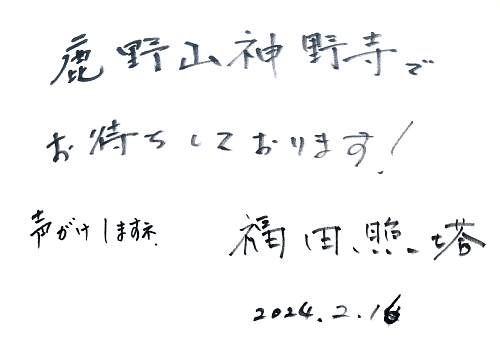 鹿野山神野寺で
お待ちしております!
声がけしますネ
福田、照、塔
2024.2.16